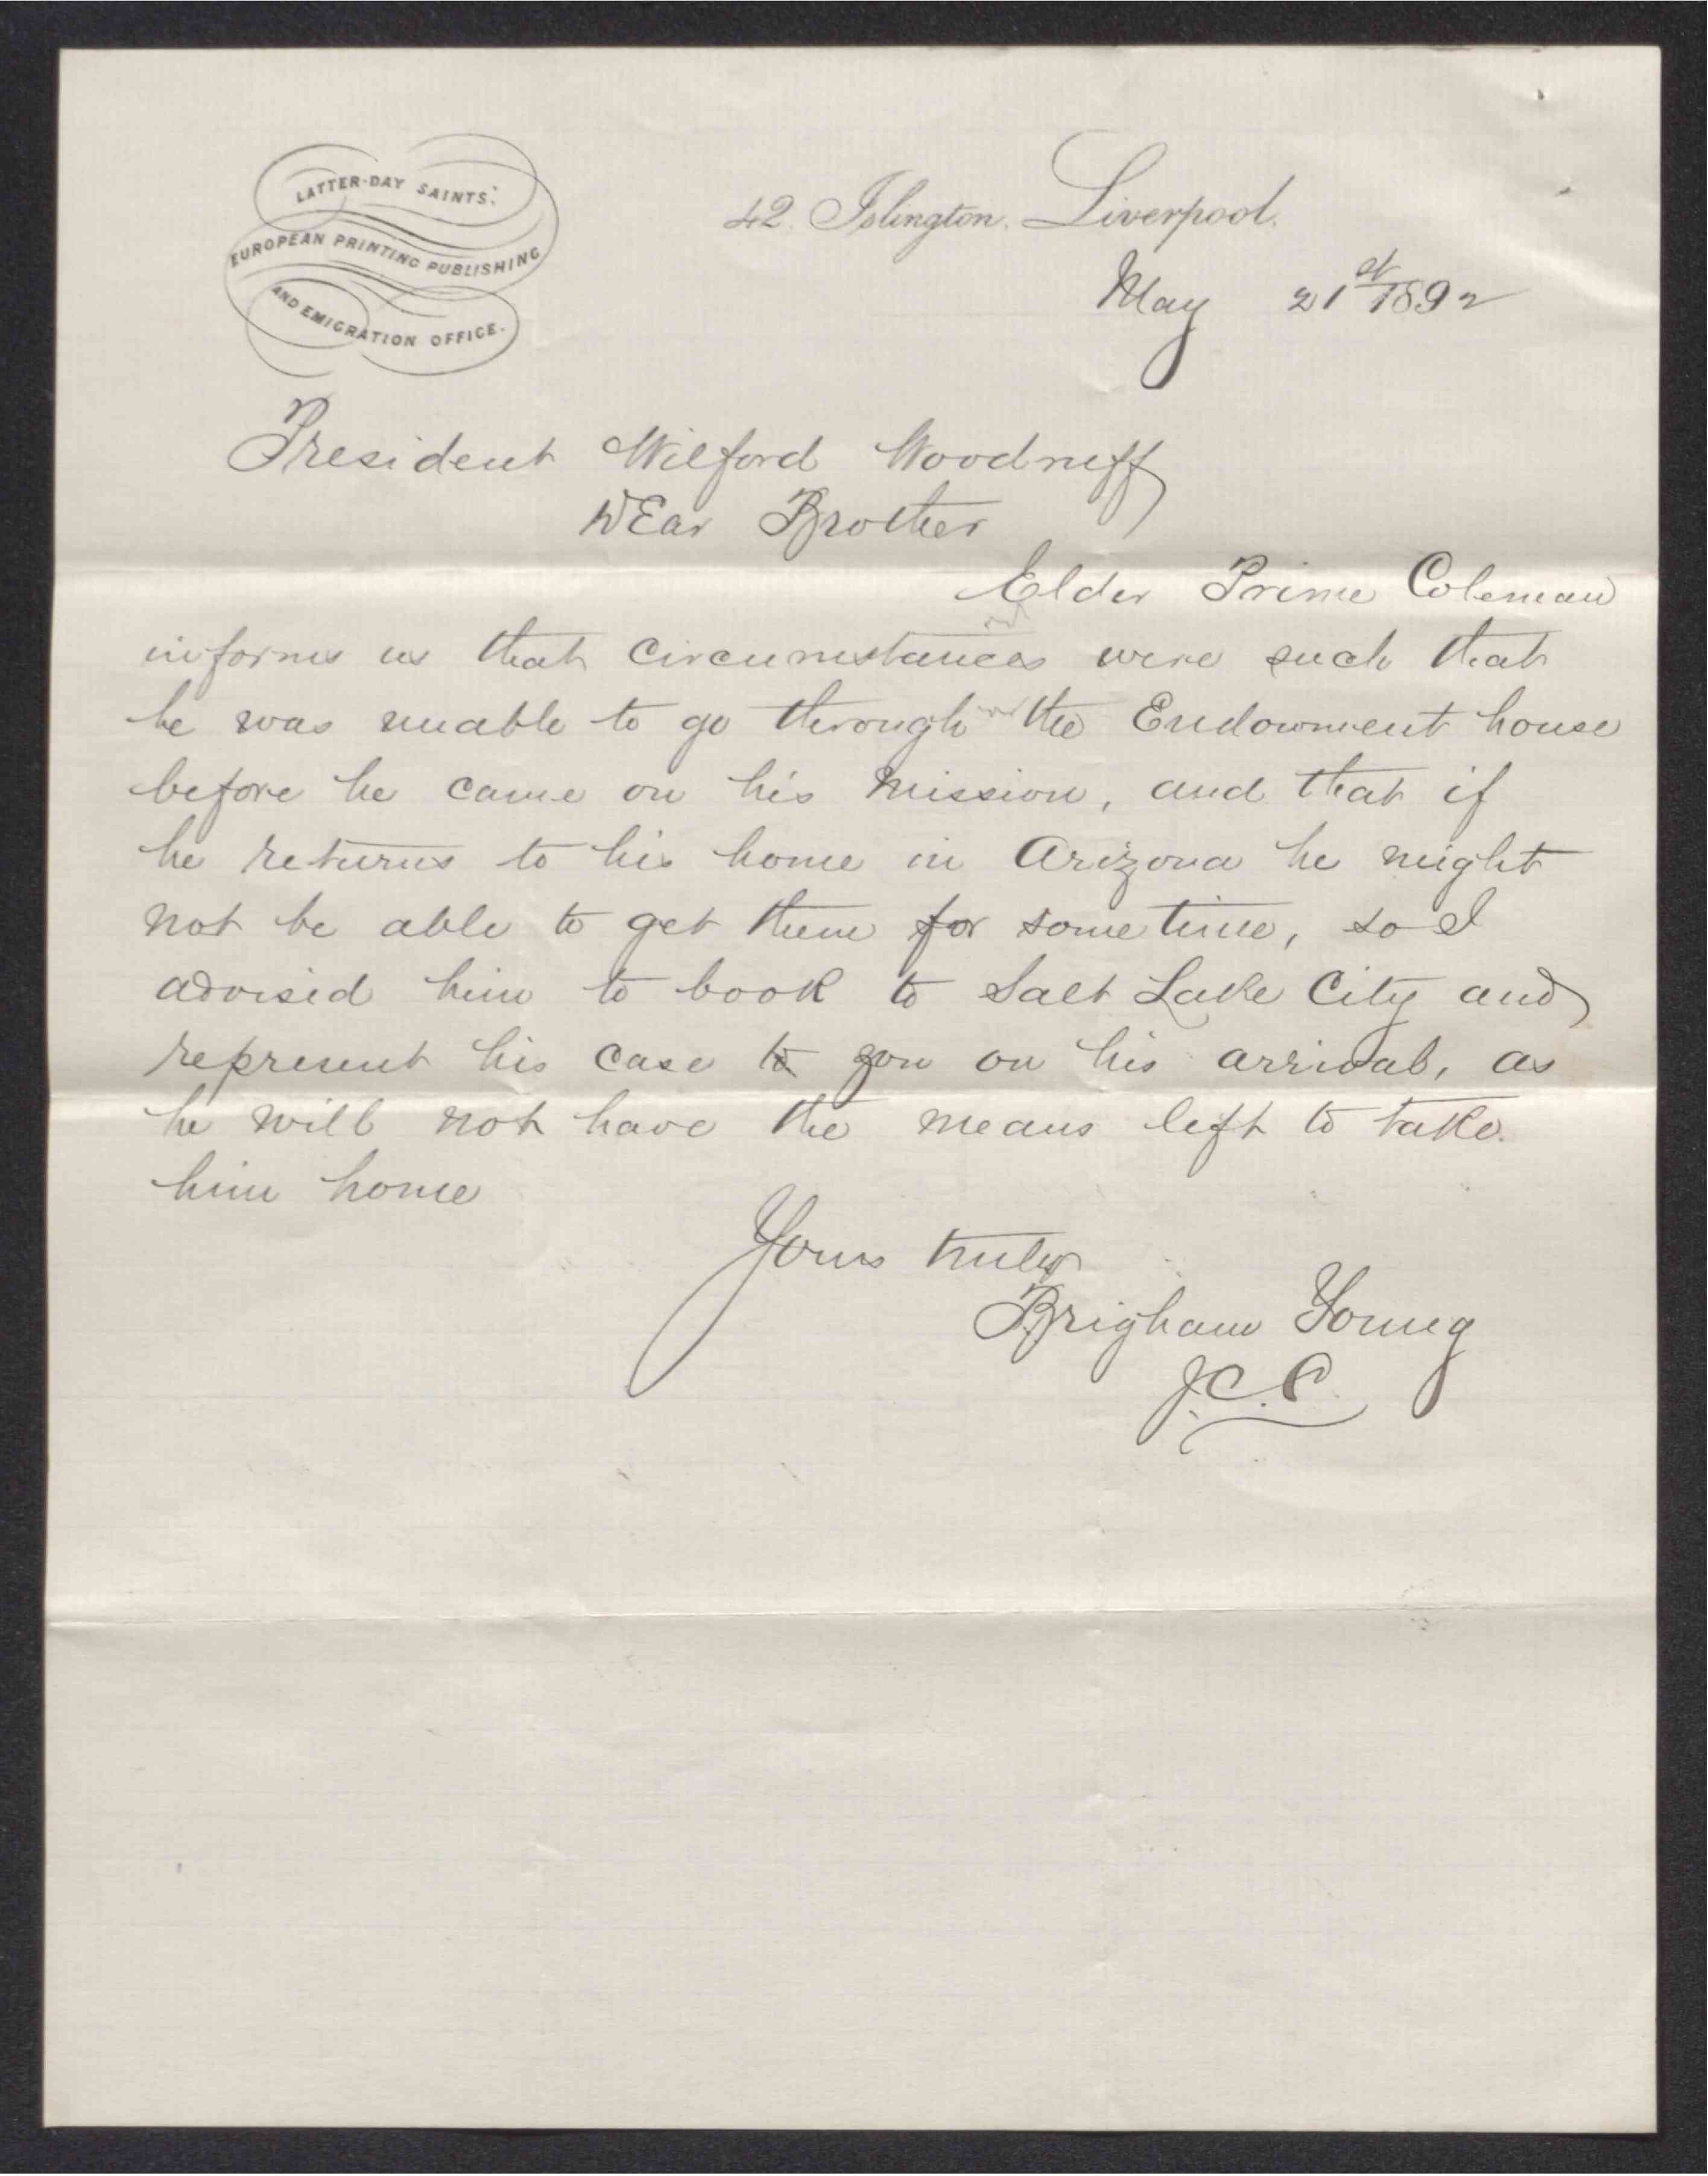 LATTER-DAY SAINTS'
EUROPEAN PRINTING PUBLISHING
AND EMIGRATION OFFICE.
42. Islington. Liverpool.
May 21st 1892
President Wilford Woodruff
DEar Brother
Elder Prime Coleman
informs us that circumstances were such that
he was unable to go through the Endowment house
before he came on his Mission, and that if
he returns to his home in Arizona he might
not be able to get them for some time, so I
advised him to book to Salt Lake City and
represent his case to you on his arrival, as
he will not have the means left to take
him home
Yours truly
Brigham Young
J.C.P.